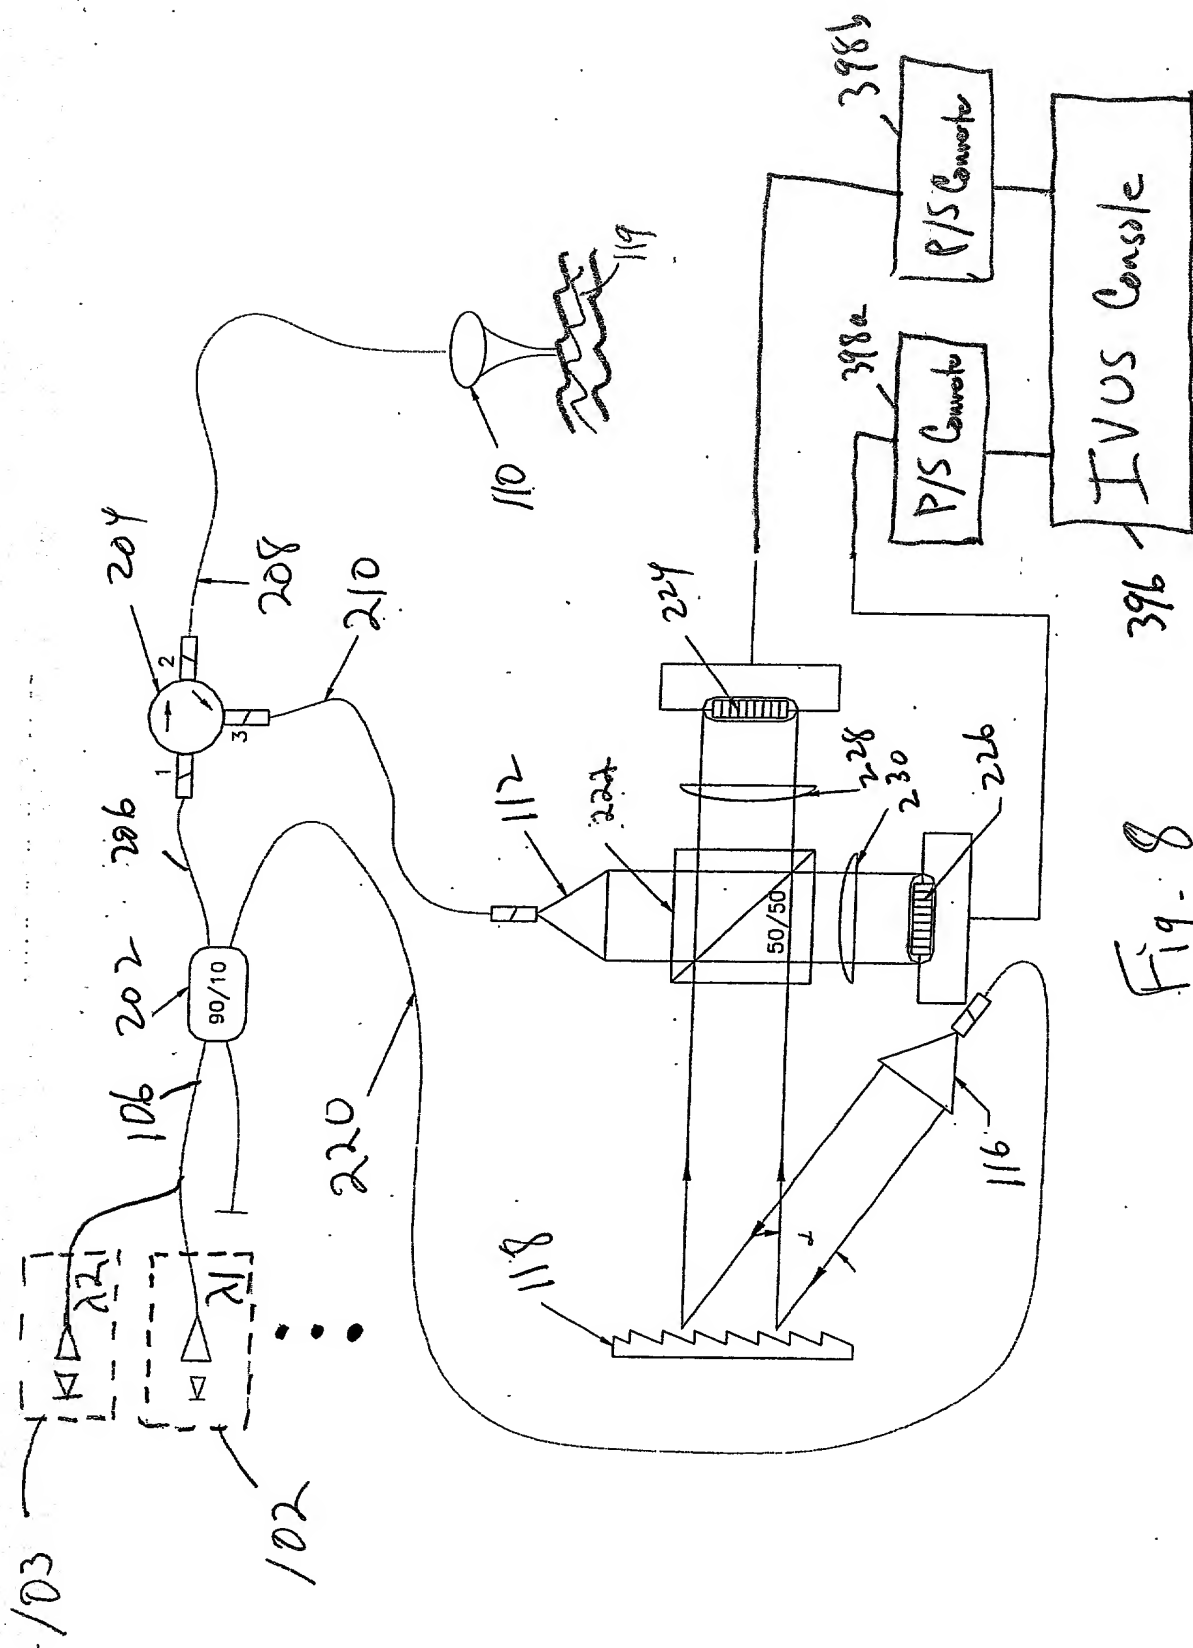 103
102
λ2
λ1
106
202
90/10
206
204
1
2
3
208
210
110
119
220
112
222
50/50
224
228
230
226
118
α
116
398a
398b
P/S Converter
P/S Converter
IVUS Console
396
Fig. 8